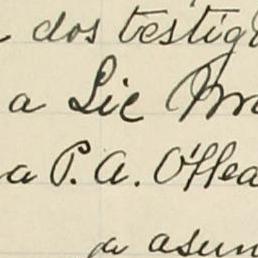 dos testig
a Lic
a P. A. O'Hea
a asun